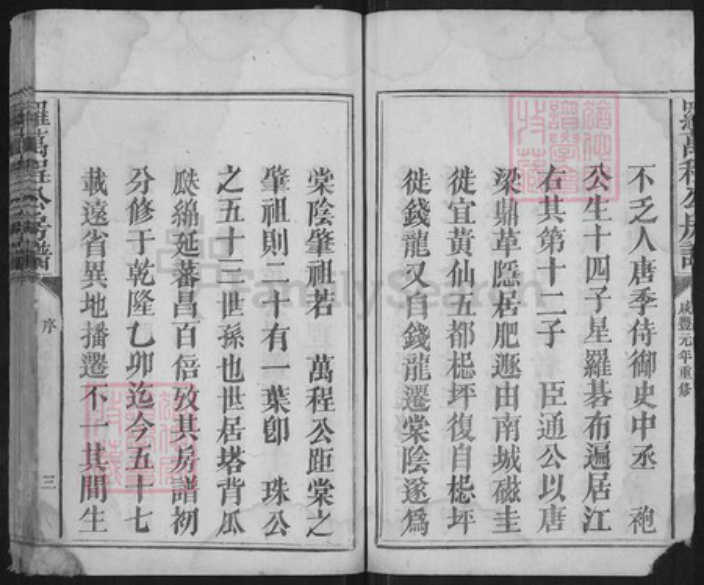 不乏人唐季侍御史中丞 袍
公生十四子星羅碁布遍居江
右其第十二子 臣通公以唐
梁鼎革隱居肥遯由南城磁圭
徙宜黃仙五都梞坪復自梞坪
徙錢龍又自錢龍遷棠陰遂爲
咸豐元年重修
棠陰肇祖若 萬程公距棠之
肇祖則二十有一葉卽 珠公
之五十三世孫也世居塔背瓜
瓞緜延蕃昌百倍攷其房譜初
分修于乾隆乙卯迄今五十七
載遠省異地播遷不一其間生
羅萬程公房譜
序
三
FamilySearch